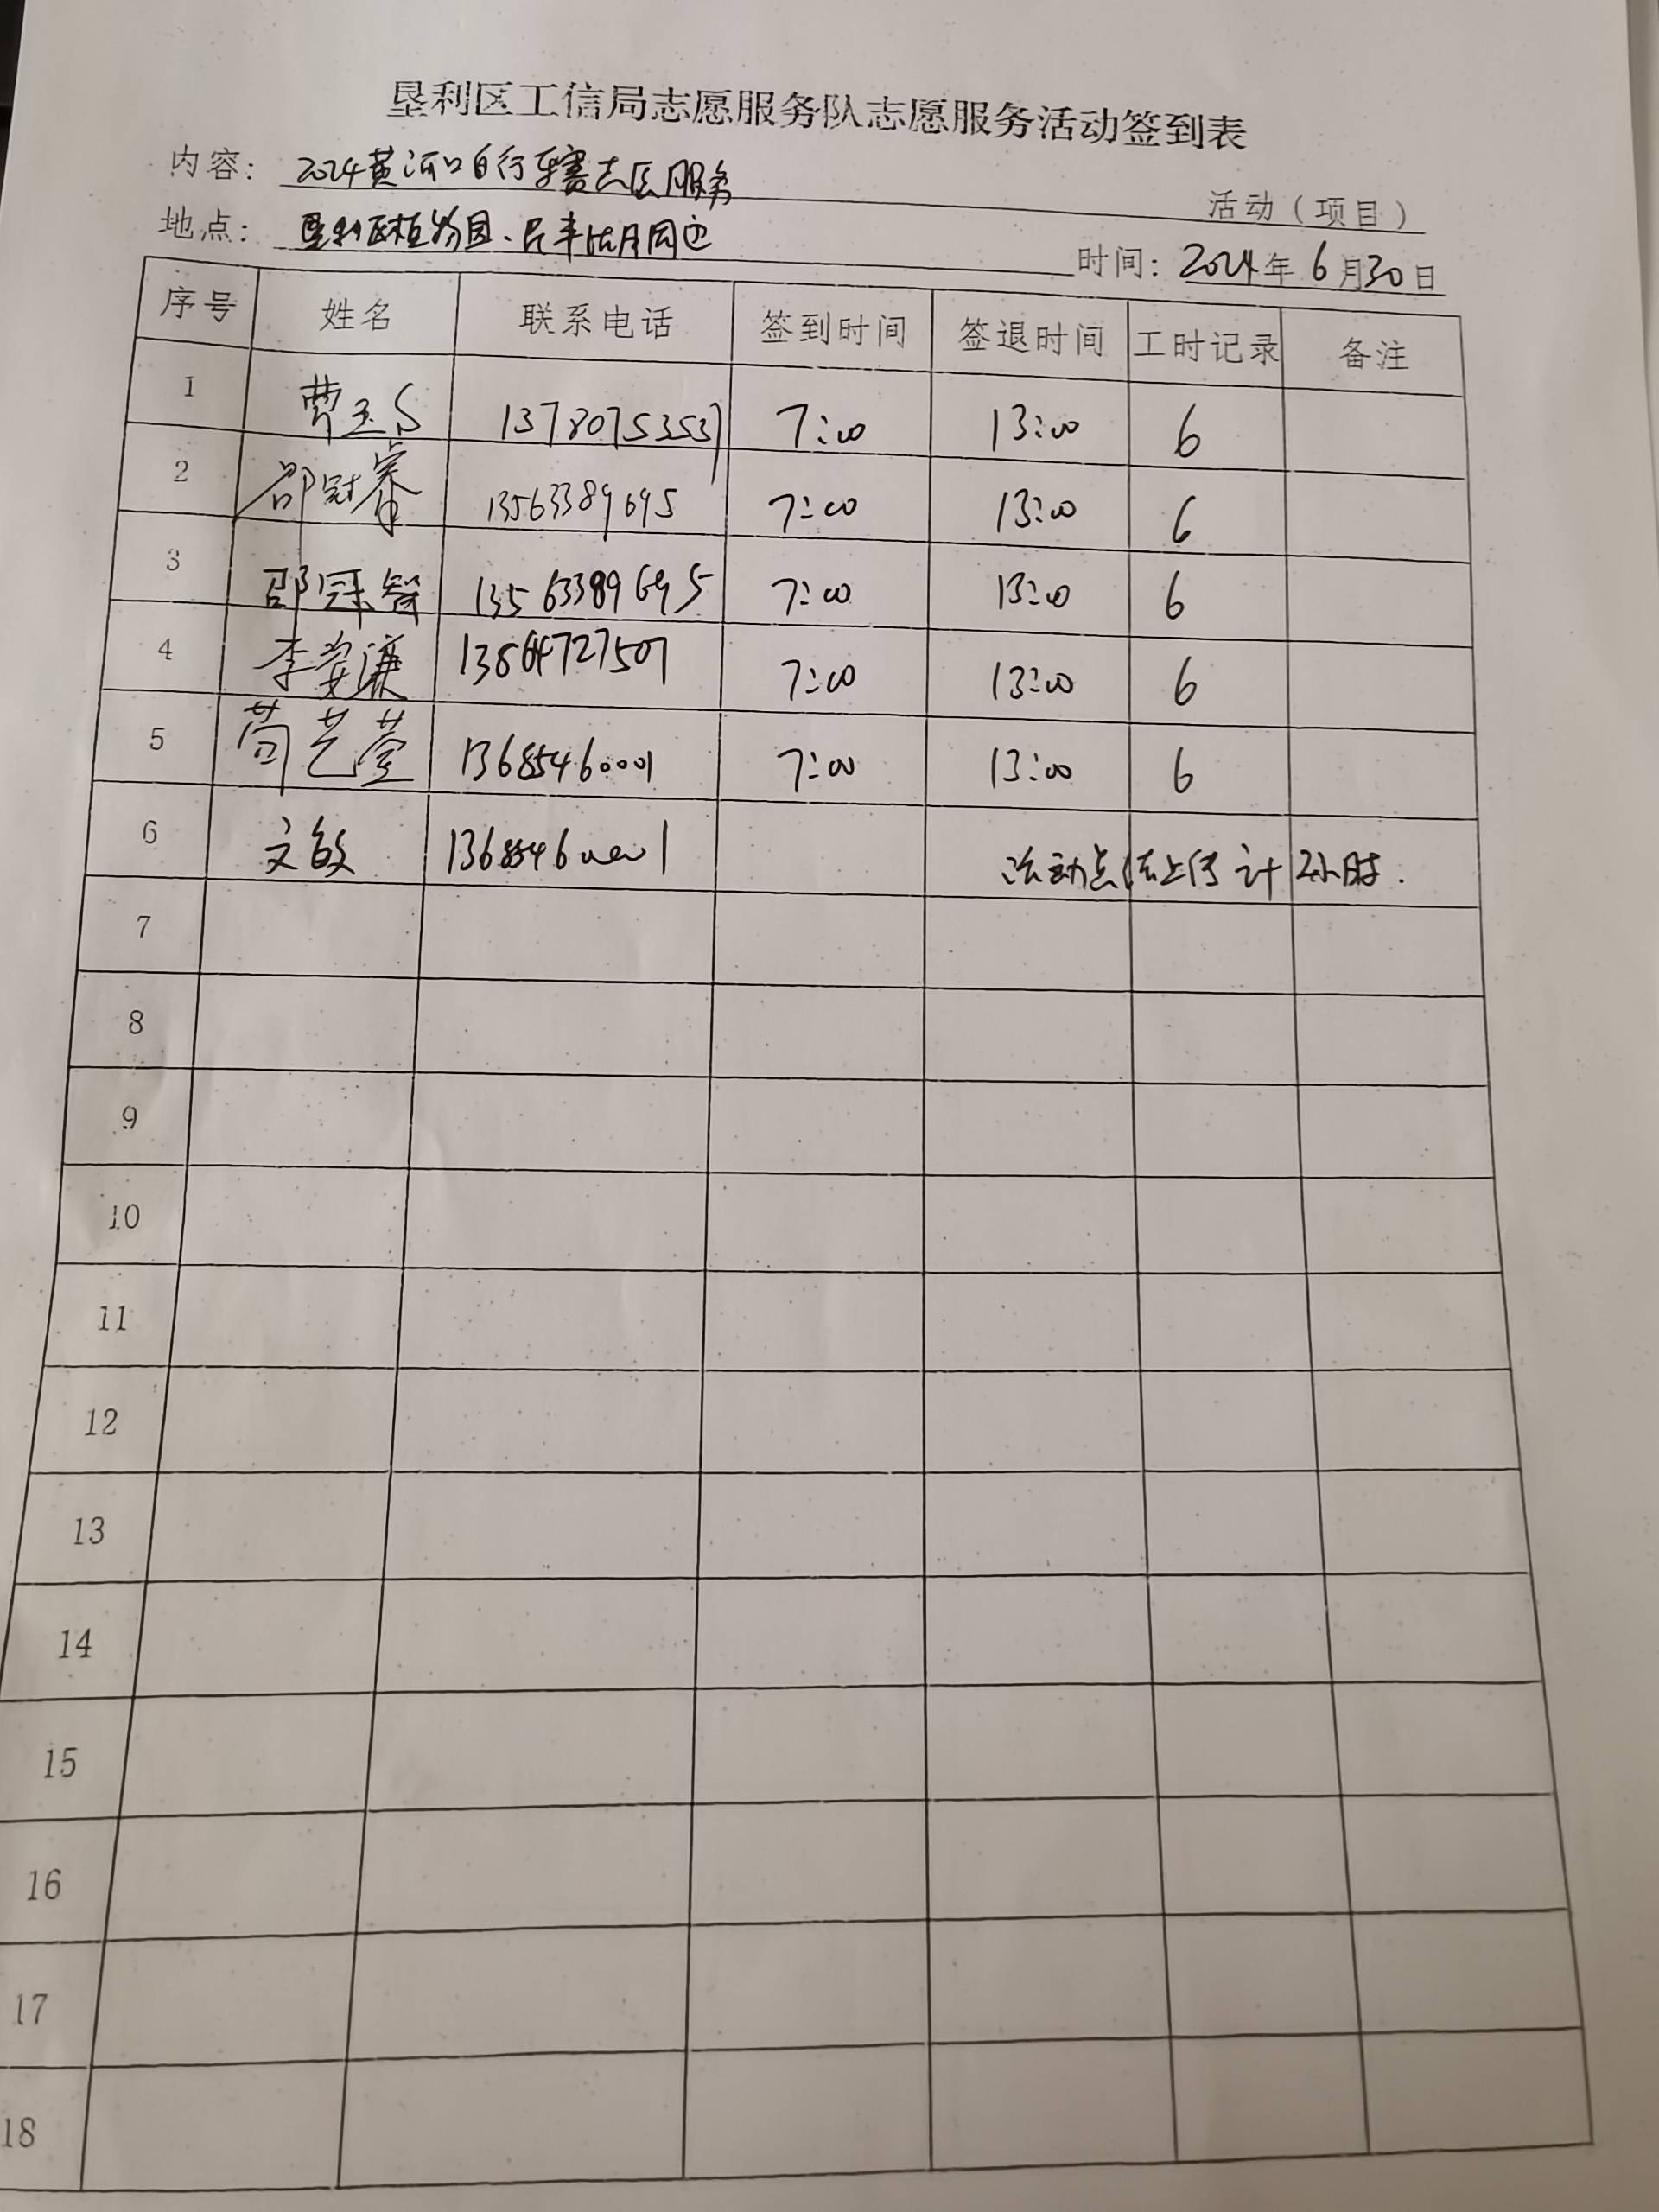 垦利区工信局志愿服务队志愿服务活动签到表
内容： 2024黄河口自行车赛志愿服务 活动（项目）
地点： 垦利区植物园、民丰湖周边 时间：2024年6月30日
序号 姓名 联系电话 签到时间 签退时间 工时记录 备注
1 曹玉 13780753537 7:00 13:00 6
2 邵冠睿 13563389695 7:00 13:00 6
3 邵冠智 13563389695 7:00 13:00 6
4 李安谦 13864727507 7:00 13:00 6
5 苟艺莹 13685460001 7:00 13:00 6
6 文敏 13685460001 活动点 上传 计 2小时.
7
8
9
10
11
12
13
14
15
16
17
18